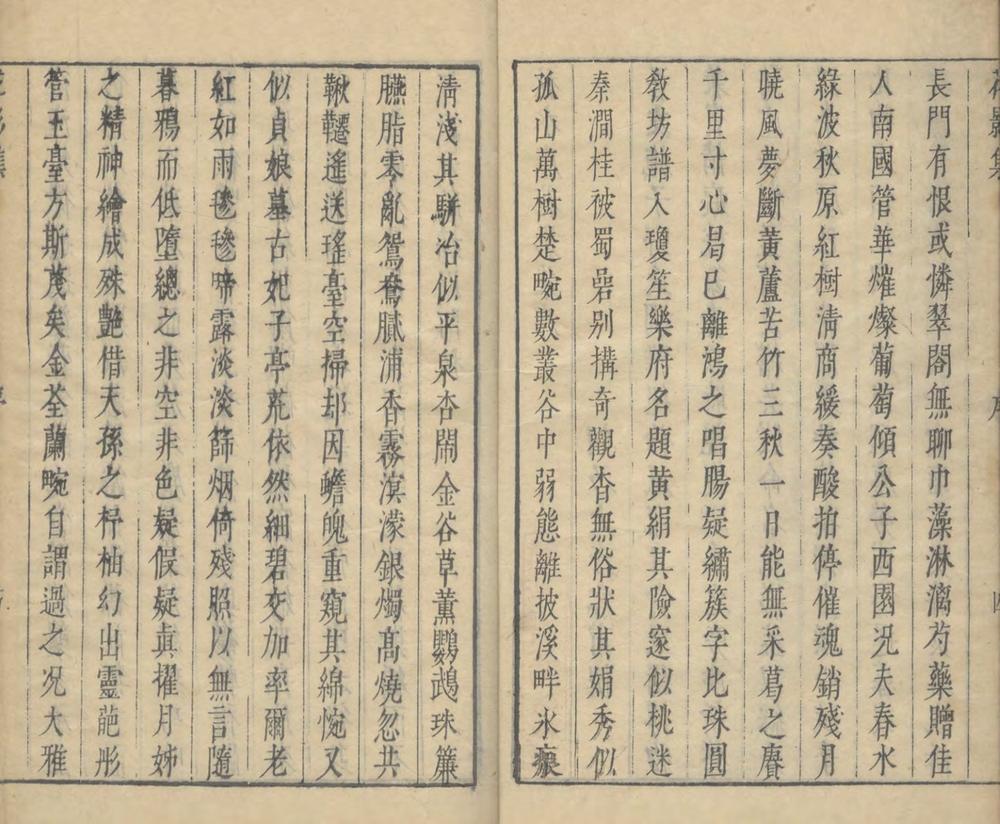 花影集 序 四
長門有恨或憐翠閣無聊巾藻淋漓芍藥贈佳
人南國管華熣燦葡萄傾公子西園况夫春水
綠波秋原紅樹清商緩奏酸拍停催魂銷殘月
曉風夢斷黃蘆苦竹三秋一日能無采葛之賡
千里寸心曷已離鴻之唱腸疑繡簇字比珠圓
敎坊譜入瓊笙樂府名題黃絹其險邃似桃迷
秦澗桂被蜀嵒别搆奇觀杳無俗狀其娟秀似
孤山萬樹楚畹數叢谷中弱態離披溪畔氷痕
清淺其駢冶似平泉杏閙金谷草薰鸚鵡珠簾
臙脂零亂鴛鴦膩浦香霧溟濛銀燭高燒忽共
鞦韆遙送瑤臺空掃却因蟾魄重窺其綿惋又
似貞娘墓古妃子亭荒依然細碧交加率爾老
紅如雨毿毿啼露淡淡篩烟倚殘照以無言隨
暮鴉而低墮總之非空非色疑假疑眞擢月姊
之精神繪成殊艶借天孫之杼柚幻出靈葩彤
管玉臺方斯蔑矣金荃蘭畹自謂過之况大雅